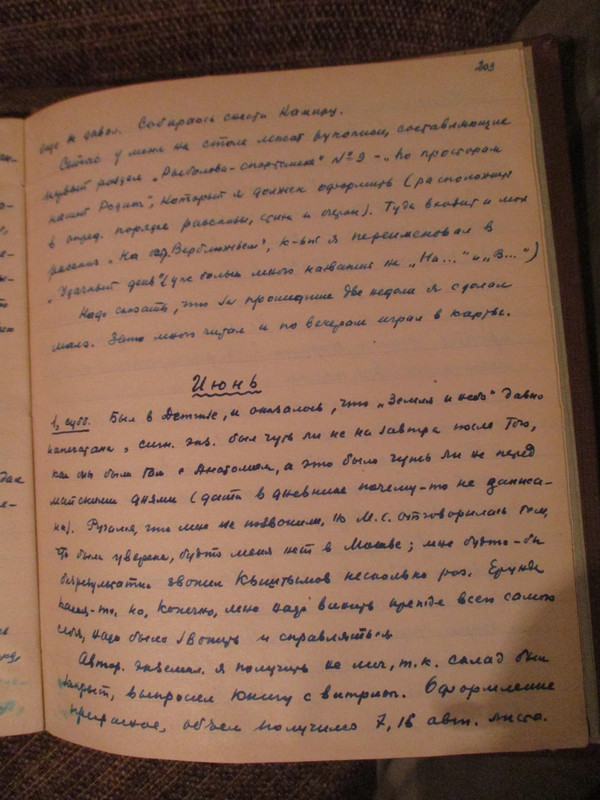 203
еще не давал. Собираюсь снести Камиру.
Сейчас у меня на столе лежат рукописи, составляющие
первый раздел „Рыболова-спортсмена" №9 – „По просторам
нашей Родины", который я должен оформить (расположить
в опред. порядке рассказы, стихи и очерки). Туда входит и мой
рассказ „На оз. Верблюжьем", к-ый я переименовал в
„Удачный день" (уже больно много названий на „На..." и „В...")
Надо сказать, что за прошедшие две недели я сделал
мало. Зато много читал и по вечерам играл в карты.
Июнь
1, субб. Был в Детгизе, и оказалось, что „Земля и небо" давно
напечатана, сигн. экз. был чуть ли не на завтра после того,
как мы были там с Анатолием, а это было чуть ли не перед
майскими днями (дата в дневнике почему-то не записа-
на). Ругался, что мне не позвонили, но М.С. отговорилась тем,
что была уверена, будто меня нет в Москве; мне будто-бы
безрезультатно звонил Кыштымов несколько раз. Ерунда
какая-то, но, конечно, мне надо винить прежде всего самого
себя, надо было звонить и справляться.
Автор. экземпл. я получить не мог, т.к. склад был
закрыт, выпросил книгу с витрины. Оформление
прекрасное, объем получился 7,16 авт. листа.